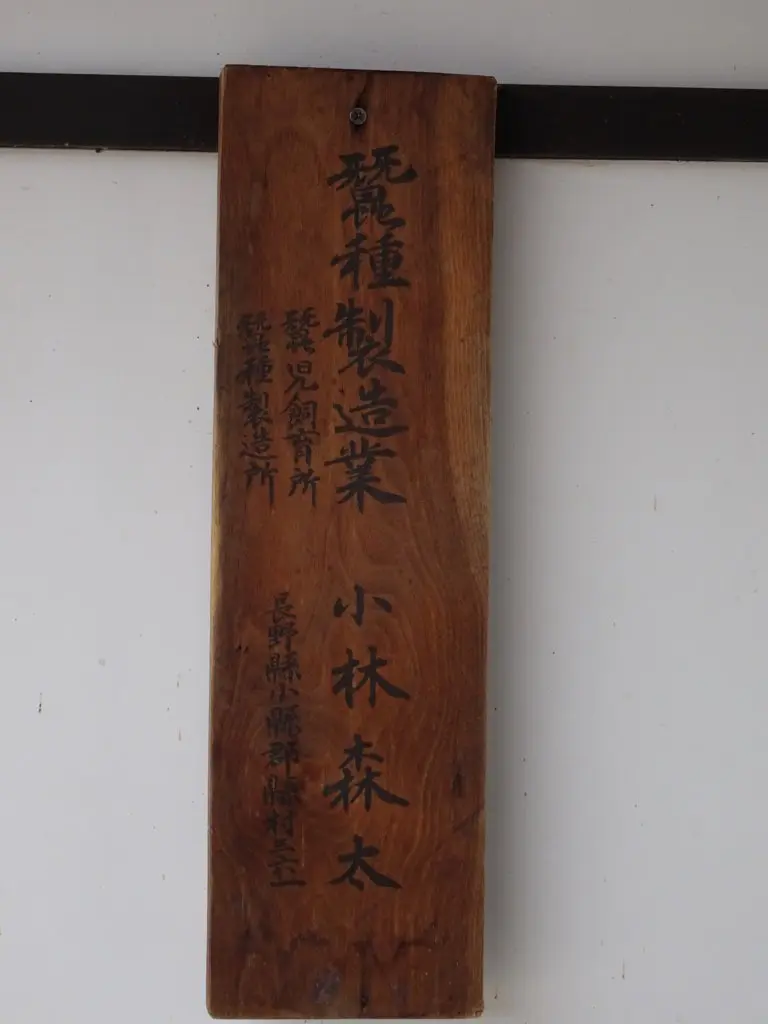 蠶種製造業 小林森太
蠶児飼育所
蠶種製造所
長野縣小縣郡縣村三六一